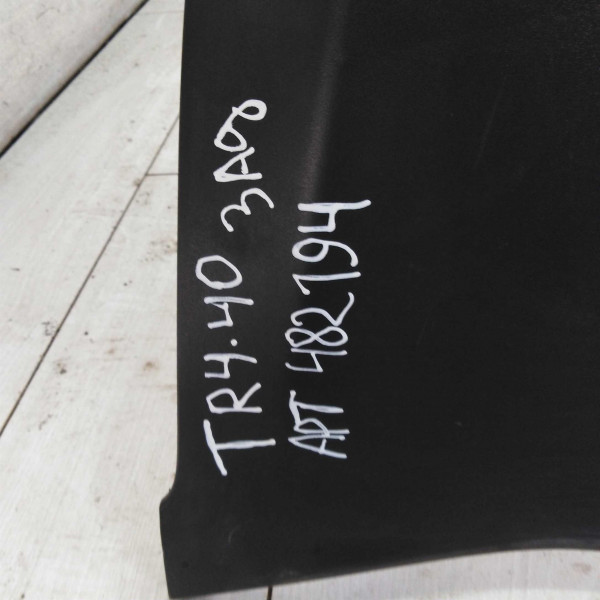 TR4.40
АРТ 482194